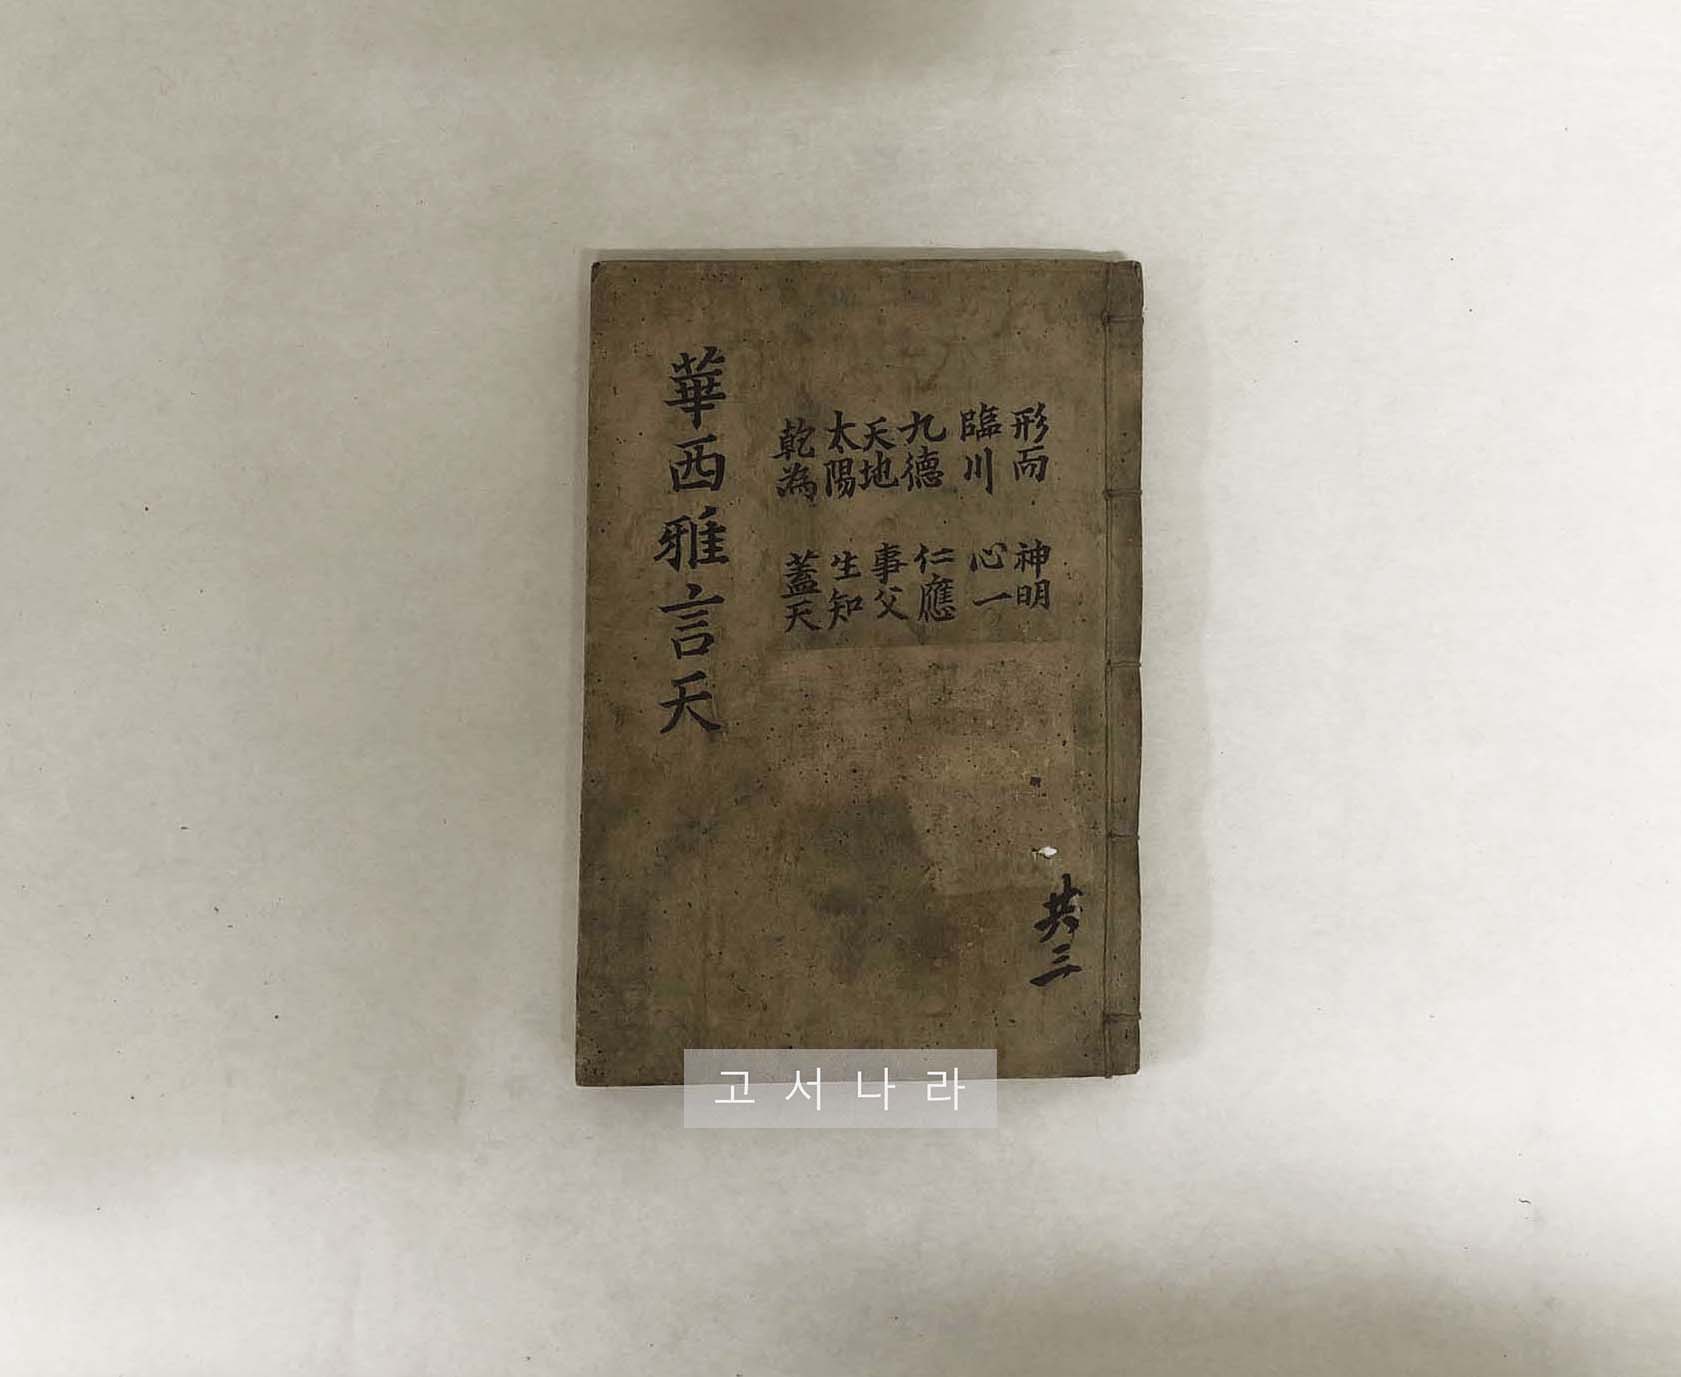 形而 神明
臨川 心一
九德 仁應
天地 事父
太陽 生知
乾為 蓋天
華西雅言天
共三
고서나라